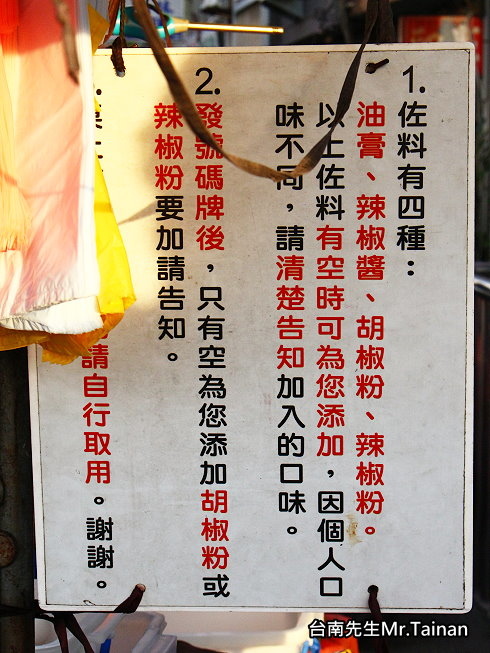 1.佐料有四種：
油膏、辣椒醬、胡椒粉、辣椒粉。
以上佐料有空時可為您添加，因個人口
味不同，請清楚告知加入的口味。
2.發號碼牌後，只有空為您添加胡椒粉或
辣椒粉要加請告知。
請自行取用。謝謝。
台南先生Mr.Tainan